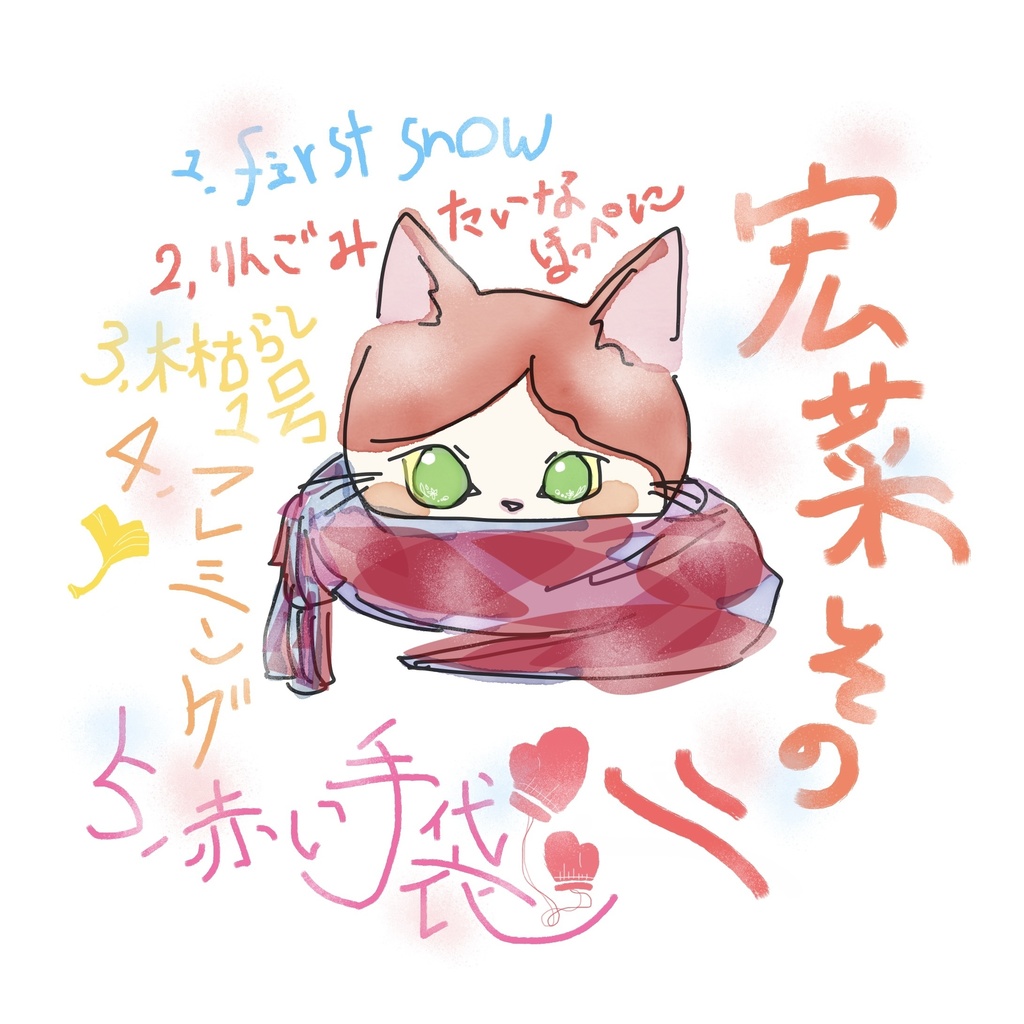 1. first snow
2, りんごみ
たいな
ほっぺに
3, 木枯らし
1号
4. フレミング
5, 赤い手袋
宏菜その